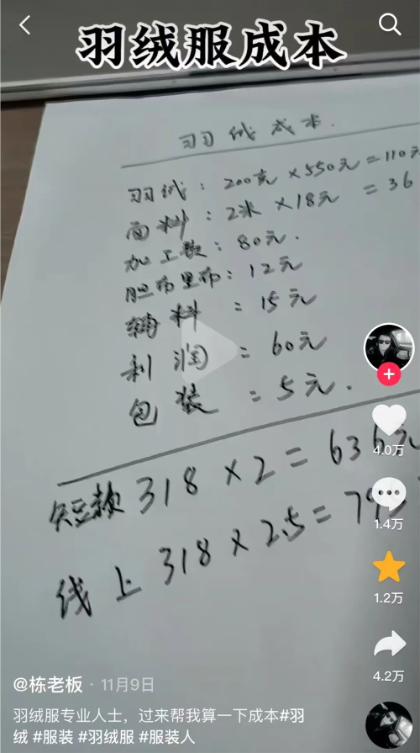 羽绒服成本
羽绒成本.
羽绒: 200克×550元=110元
面料: 2米×18元=36
加工款: 80元.
胆布里布: 12元
辅料: 15元
利润: 60元
包装: 5元.
短款 318×2=636元
线上 318×2.5=795
4.0万
1.4万
1.2万
4.2万
@栋老板 · 11月9日
羽绒服专业人士，过来帮我算一下成本#羽
绒 #服装 #羽绒服 #服装人